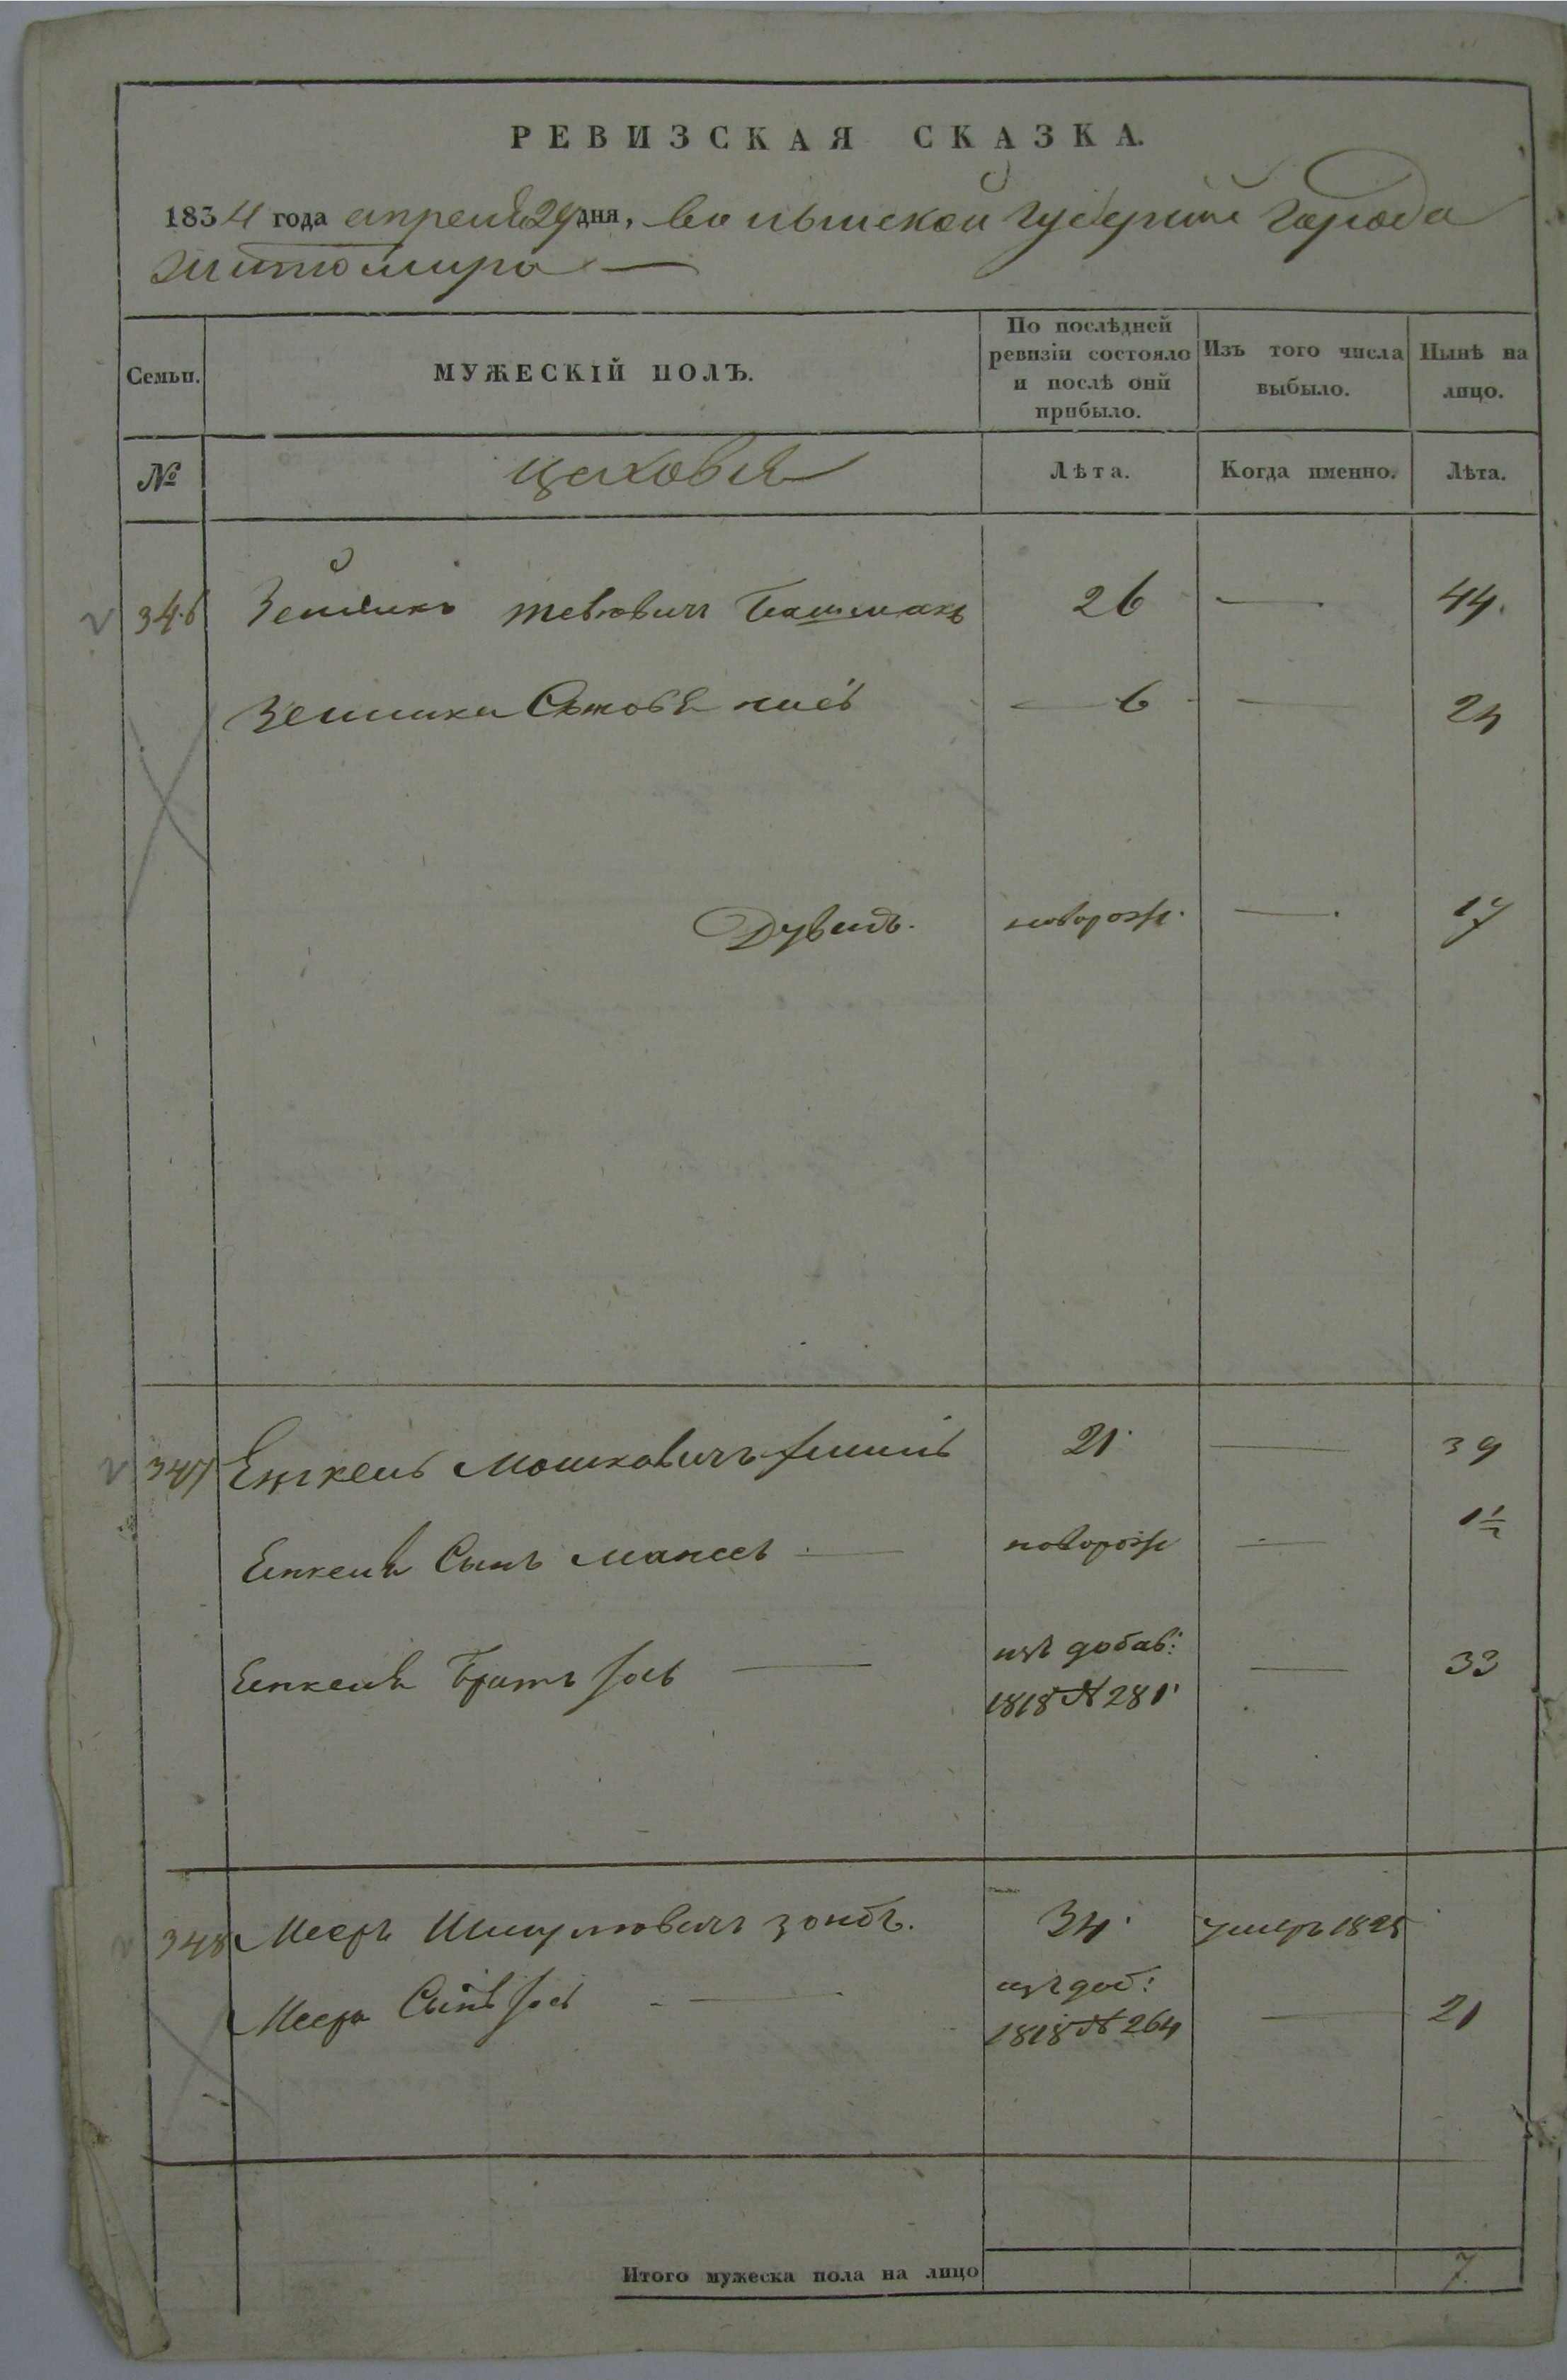 РЕВИЗСКАЯ СКАЗКА.
1834 года апреля 29 дня, Волынской Губернии Города
Житомира —
Семьи. МУЖЕСКІЙ ПОЛЪ. По послѣдней ревизіи состояло и послѣ онй прибыло. Изъ того числа выбыло. Нынѣ на лицо.
№ цеховыя Лѣта. Когда именно. Лѣта.
346 Тевьовичъ Башмакъ 26 — 44.
— 6 — 24
Дувидъ. новорож. — 17
347 Мошковичъ 21 — 39
Сынъ Мансеъ — новорож — 1½
Братъ — изъ добав: — 33
1818 № 281
348 Мееръ Шмулювичъ Зондъ. 34 умеръ 1825
Меера Сынъ — изъ доб: — 21
1818 № 264
Итого мужеска пола на лицо 7